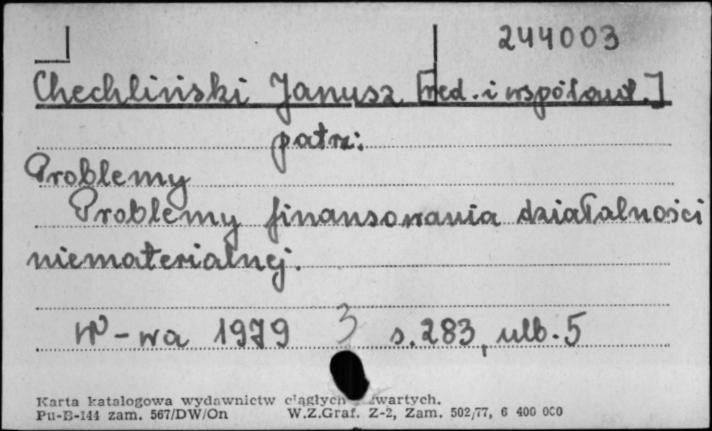 244003
Chechliński Janusz [red. i współaut.]
patrz:
Problemy
Problemy finansowania działalności
niematerialnej.
W-wa 1979 3 s. 283, ulb. 5
Karta katalogowa wydawnictw ciągłych zwartych.
Pu-B-144 zam. 567/DW/On W.Z.Graf. Z-2, Zam. 502/77, 6 400 000